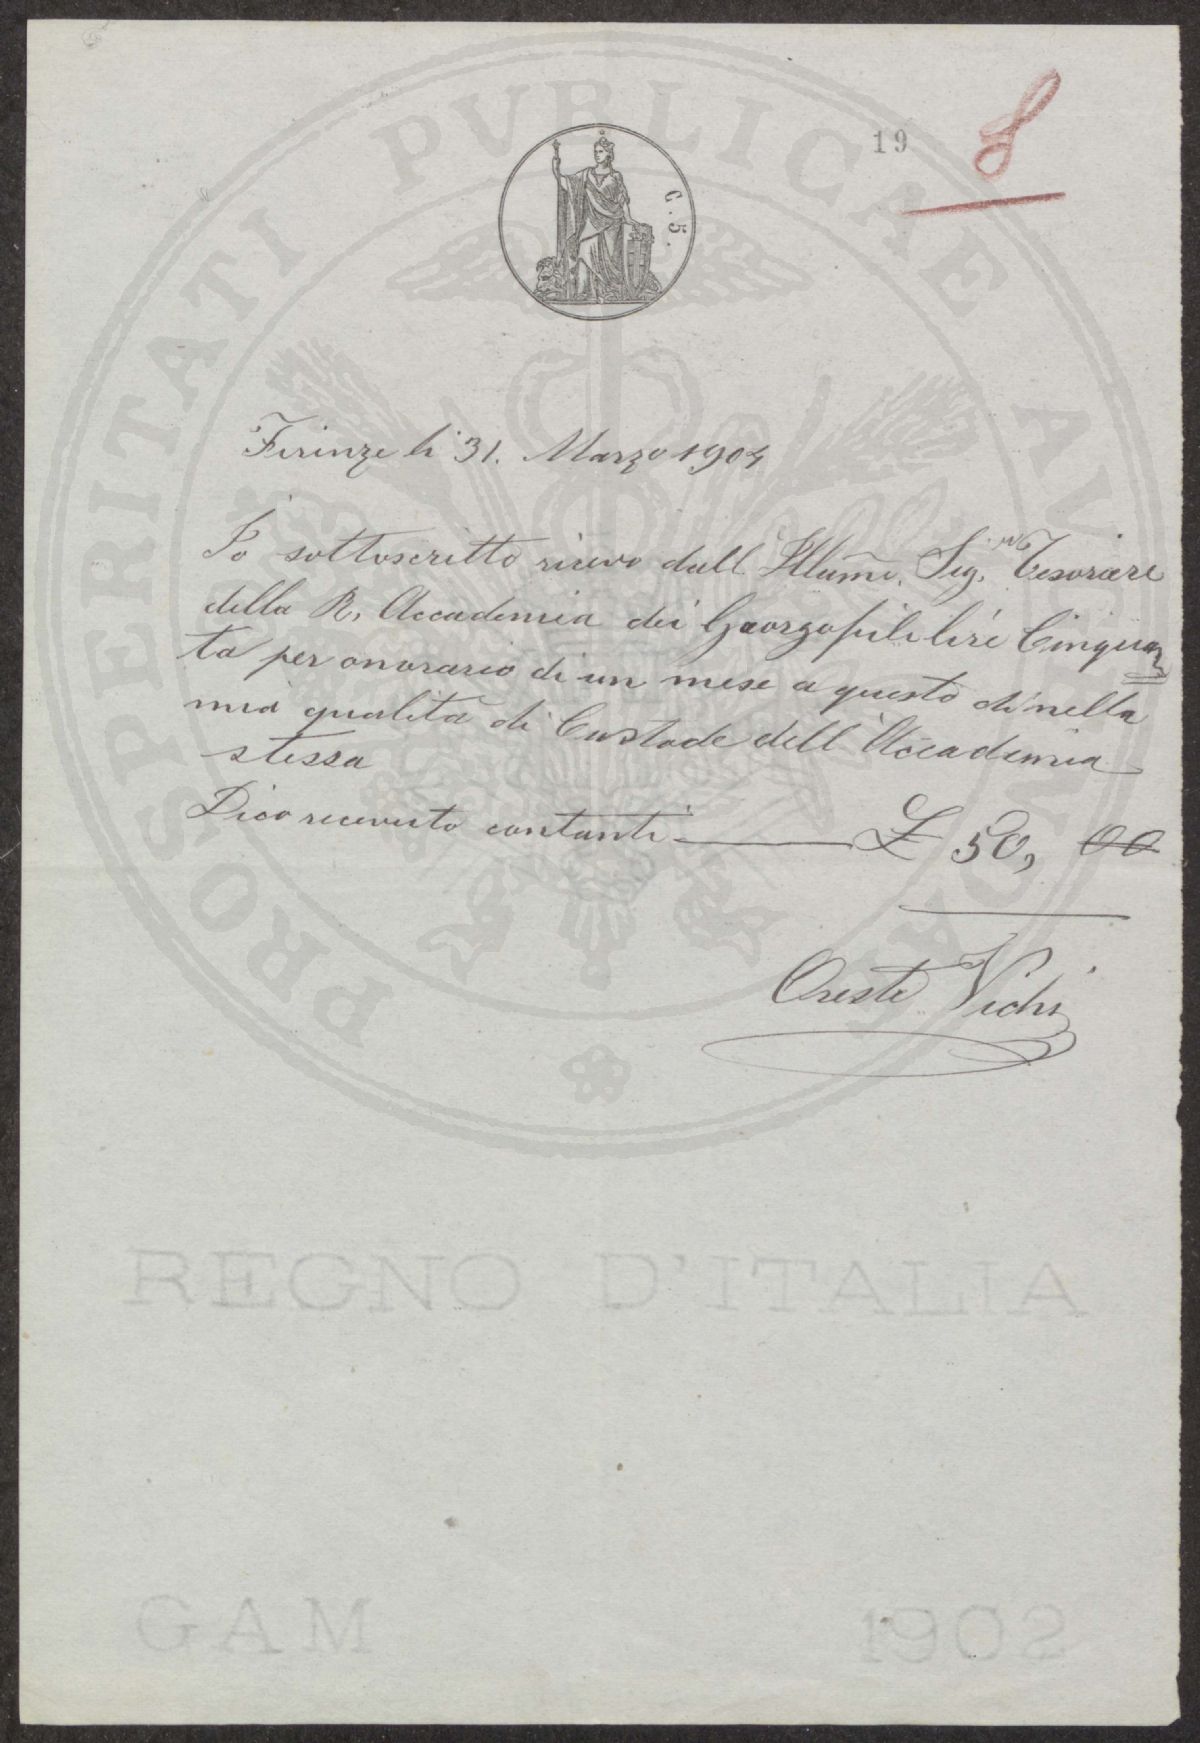 19
8
C. 5.
PROSPERITATI PVBLICAE AVGENDAE
Firenze li 31. Marzo 1904
Io sottoscritto ricevo dall Illumo. Sig.re Tesoriere
della R. Accademia dei Georgofili lire Cinquan
ta per onorario di un mese a questo dì nella
mia qualità di Custode dell'Accademia
stessa
Dico ricevuto contanti - £ 50, 00
Oreste Vichi
REGNO D'ITALIA
GAM 1902